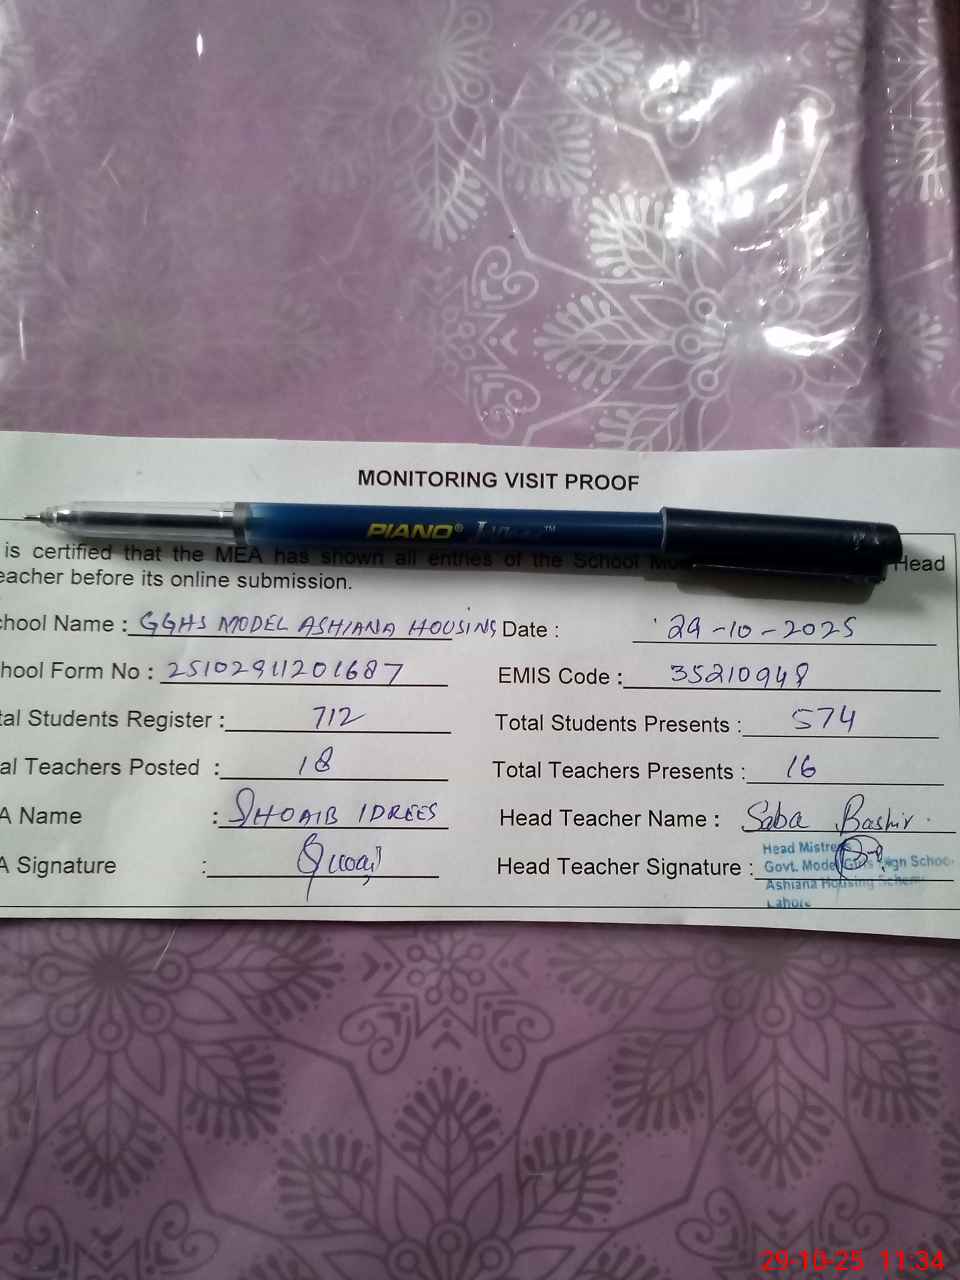 MONITORING VISIT PROOF
PIANO®
is certified that the MEA has shown all entries of the School Head
eacher before its online submission.
chool Name : GGHS MODEL ASHIANA HOUSING Date : 29-10-2025
hool Form No : 25102911201687 EMIS Code : 35210948
tal Students Register : 712 Total Students Presents : 574
al Teachers Posted : 18 Total Teachers Presents : 16
A Name : SHOAIB IDREES Head Teacher Name : Saba Bashir.
A Signature : Head Teacher Signature :
Head Mistress
Govt. Model Girls High School
Ashiana Housing Scheme
Lahore
29-10-25 11:34